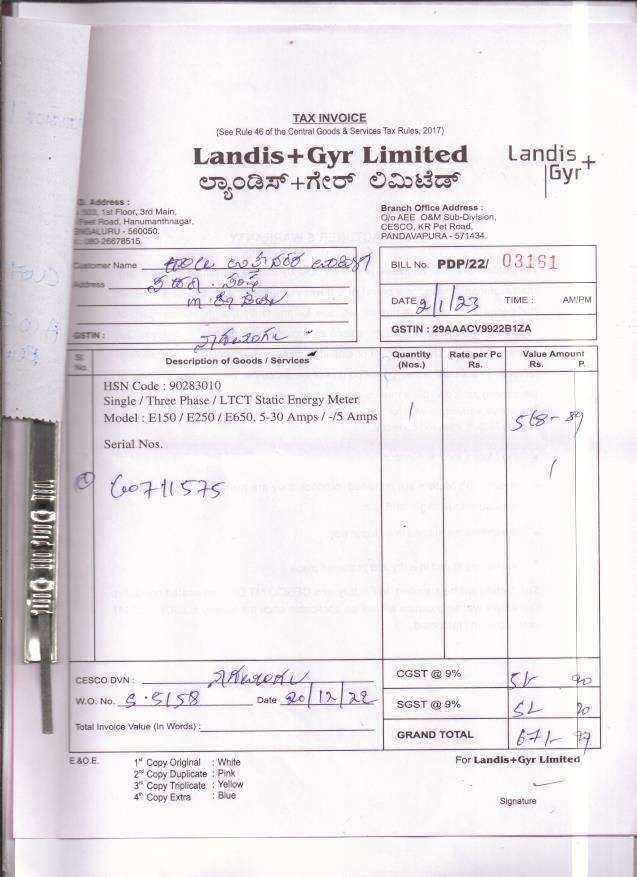 TAX INVOICE
(See Rule 46 of the Central Goods & Services Tax Rules, 2017)
Landis+Gyr Limited
ಲ್ಯಾಂಡಿಸ್+ಗೇರ್ ಲಿಮಿಟೆಡ್
Landis+
Gyr
Address :
1st Floor, 3rd Main,
Feet Road, Hanumanthnagar,
BENGALURU - 560050.
080-26678515
Branch Office Address :
O/o AEE O&M Sub-Division,
CESCO, KR Pet Road,
PANDAVAPURA - 571434.
Customer Name
Address
GSTIN :
BILL No. PDP/22/ 03161
DATE 2/1/23 TIME : AM/PM
GSTIN : 29AAACV9922B1ZA
Sl. No. Description of Goods / Services Quantity (Nos.) Rate per Pc Rs. Value Amount Rs. P.
HSN Code : 90283010
Single / Three Phase / LTCT Static Energy Meter
Model : E150 / E250 / E650, 5-30 Amps / -/5 Amps 1 568-89
Serial Nos.
1 60711575
CESCO DVN :
W.O. No. S-5158 Date 20/12/22
Total Invoice Value (In Words) :
CGST @ 9% 51 20
SGST @ 9% 51 20
GRAND TOTAL 671- 29
E.&O.E.
1st Copy Original : White
2nd Copy Duplicate : Pink
3rd Copy Triplicate : Yellow
4th Copy Extra : Blue
For Landis+Gyr Limited
Signature